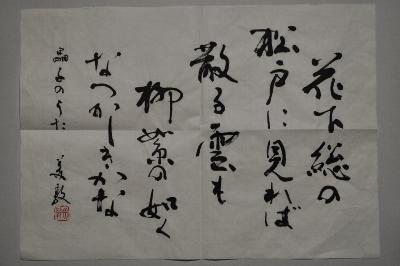 花下総の
松戸に見れば
散る雲も
柳絮の如く
なつかしきかな
晶子のうた 美敦